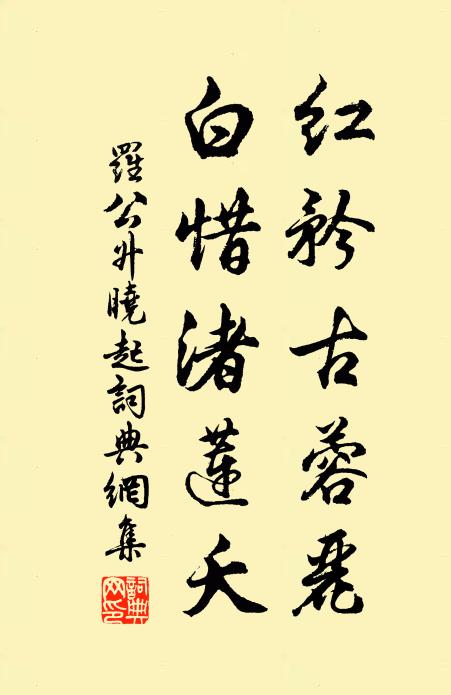 红矜古蓉麗
白惜渚蓮夭
羅公升曉起詞典網集
詞典網印